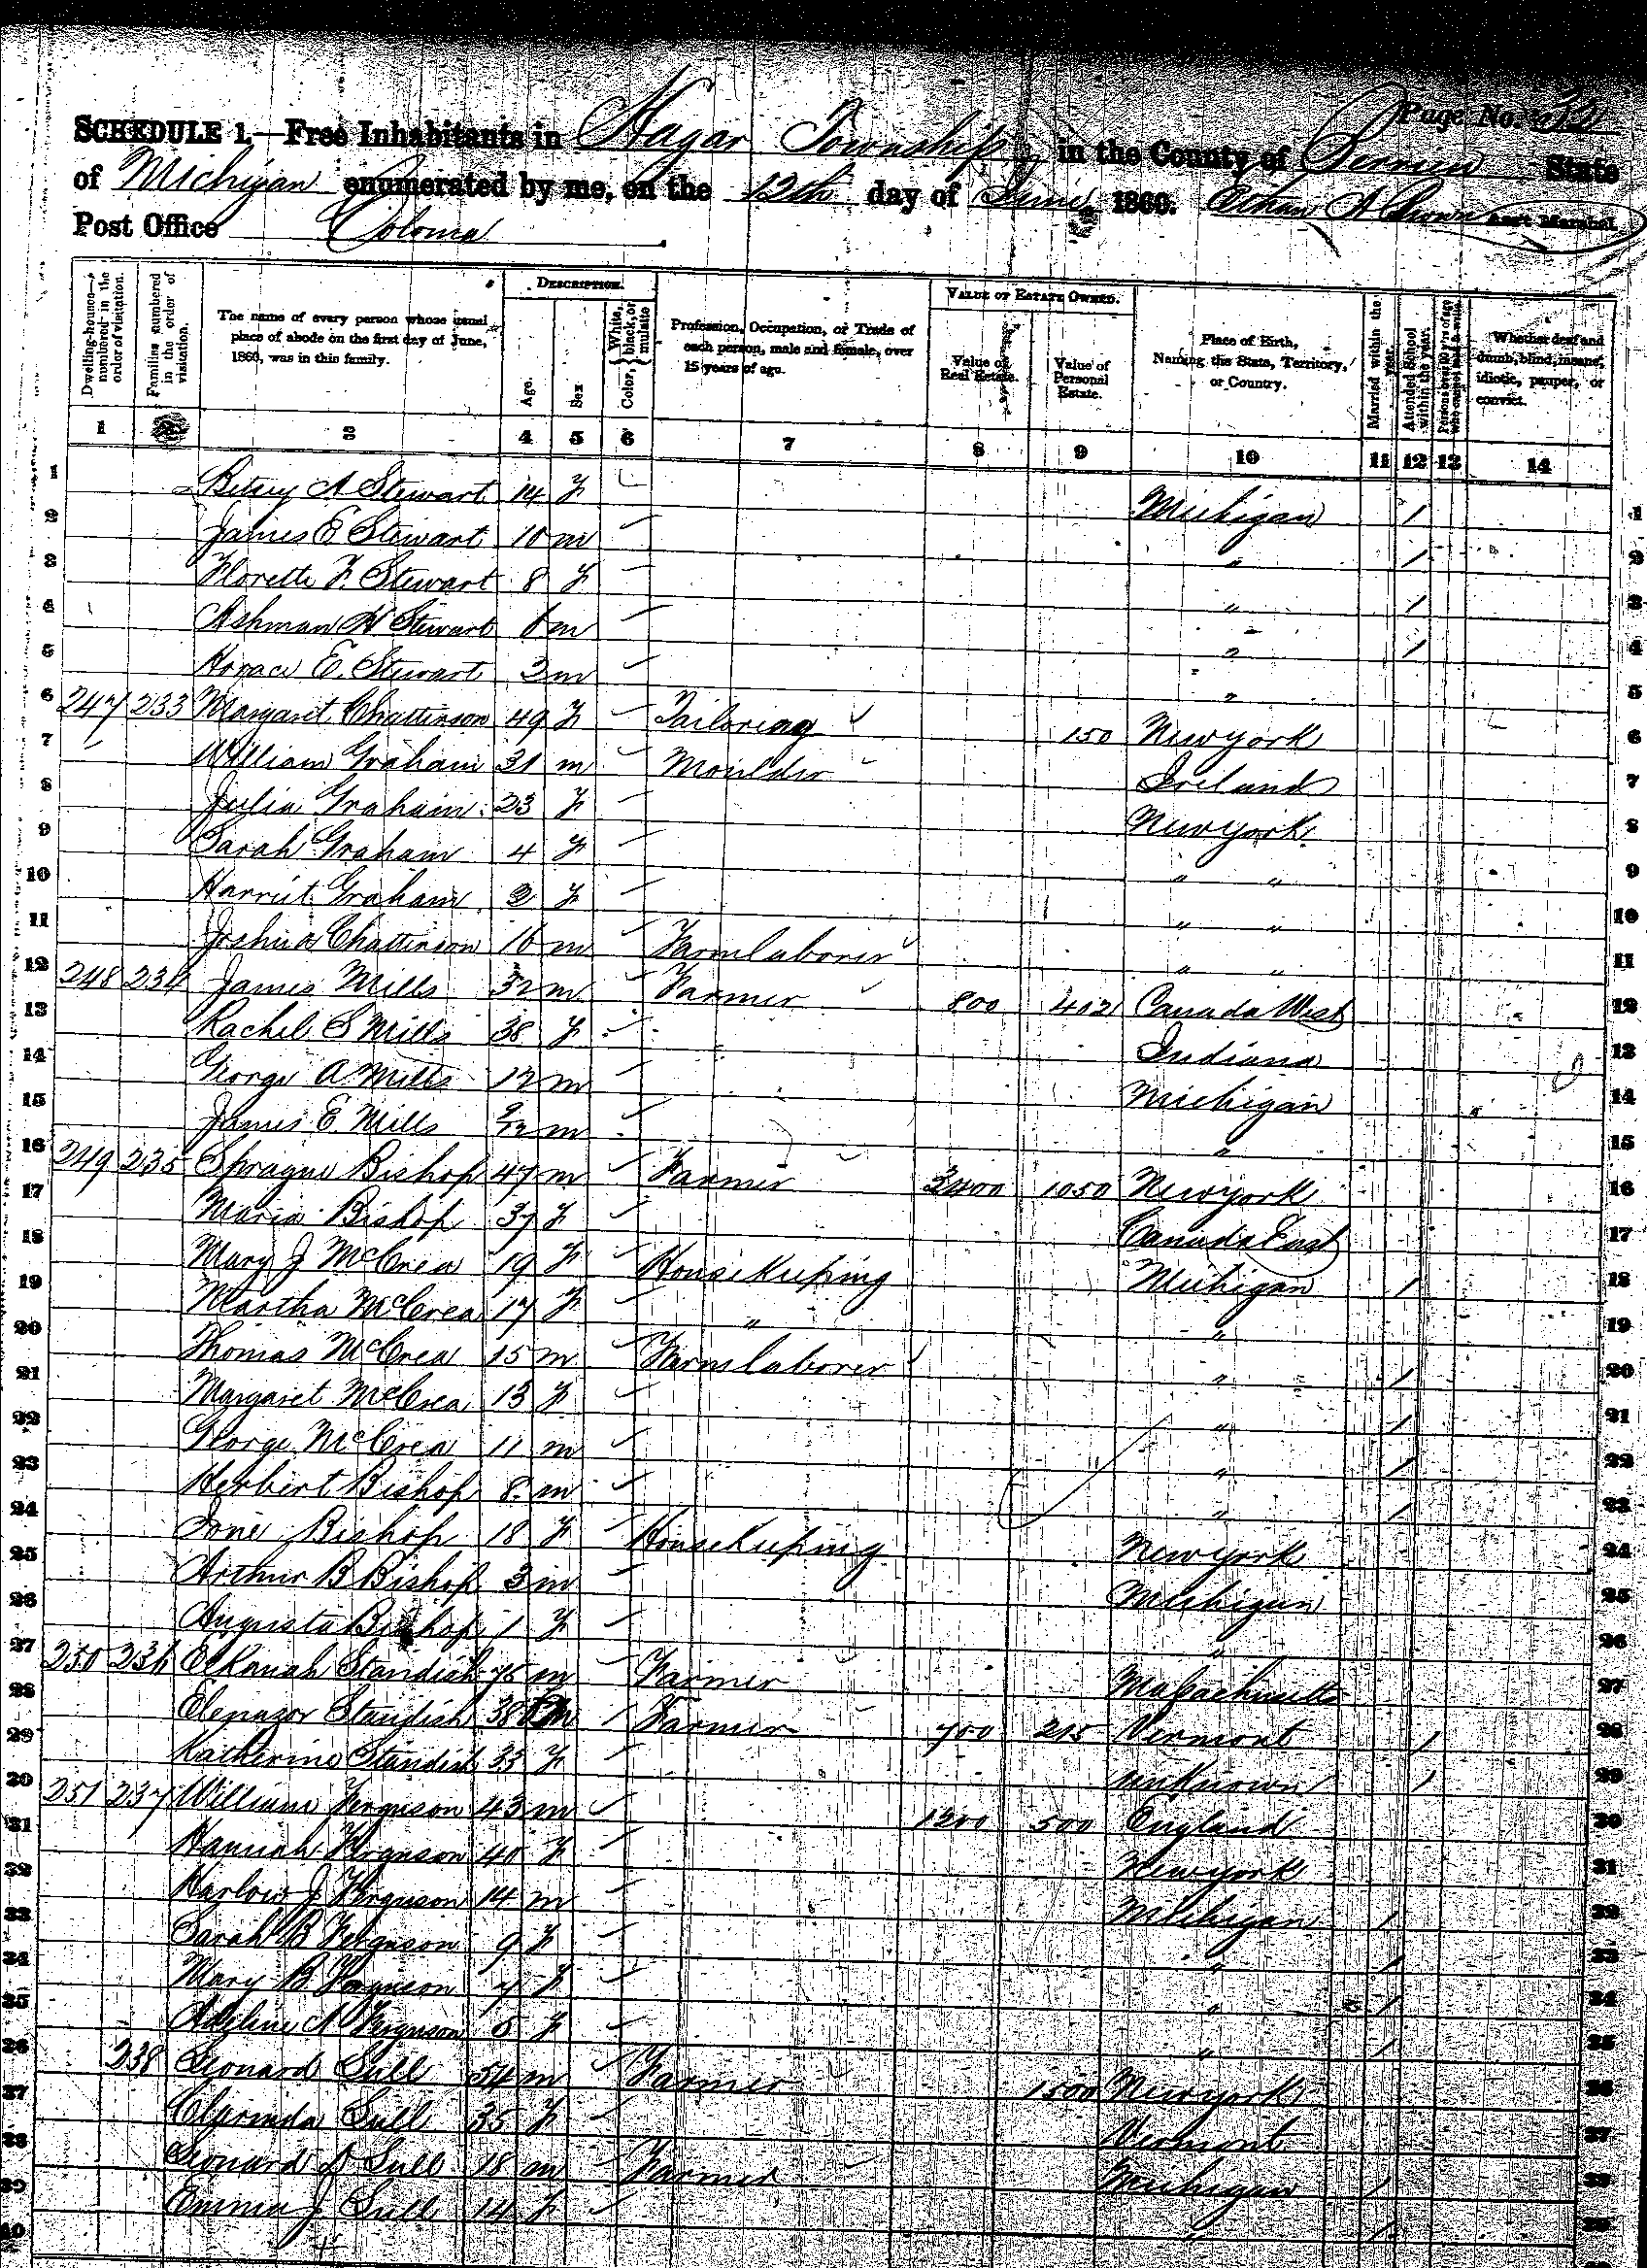 Page No.
SCHEDULE 1.—Free Inhabitants in Hagar Township in the County of Berrien State
of Michigan enumerated by me, on the 12th day of June 1860. Ethan A Brown Ass't Marshal.
Post Office Coloma
Dwelling-houses—numbered in the order of visitation.
Families numbered in the order of visitation.
The name of every person whose usual place of abode on the first day of June, 1860, was in this family.
DESCRIPTION.
Age.
Sex
Color, { White, black, or mulatto
Profession, Occupation, or Trade of each person, male and female, over 15 years of age.
VALUE OF ESTATE OWNED.
Value of Real Estate.
Value of Personal Estate.
Place of Birth, Naming the State, Territory, or Country.
Married within the year.
Attended School within the year.
Whether deaf and dumb, blind, insane, idiotic, pauper, or convict.
1 2 3 4 5 6 7 8 9 10 11 12 13 14
1 Betsy A Stewart 14 F Michigan / 1
2 James E Stewart 10 m " / 2
3 Florette F. Stewart 8 F " / 3
4 Ashman H Stewart 6 m " / 4
5 Horace E. Stewart 3 m " 5
6 247 233 Margaret Chatterson 49 F Tailoring 150 New york 6
7 William Graham 31 m Moulder Ireland 7
8 Julia Graham 23 F New york 8
9 Sarah Graham 4 F " " 9
10 Harriet Graham 2 F " " 10
11 Joshua Chatterson 16 m Farm laborer " " 11
12 248 234 James Mills 32 m Farmer 800 402 Canada West 12
13 Rachel S Mills 38 F Indiana 13
14 George A Mills 12 m Michigan 14
15 James E. Mills m " 15
16 249 235 Sprague Bishop 47 m Farmer 3400 1050 New york 16
17 Maria Bishop 37 F Canada East 17
18 Mary J McCrea 19 F Housekeeping Michigan / 18
19 Martha McCrea 17 F " " 19
20 Thomas McCrea 15 m Farm laborer " / 20
21 Margaret McCrea 13 F " / 21
22 George McCrea 11 m " / 22
23 Herbert Bishop 8 m " / 23
24 Bishop 18 F Housekeeping New york 24
25 Arthur B Bishop 3 m Michigan 25
26 Augusta Bishop 1 F " 26
27 250 236 Elkanah Standish 75 m Farmer Massachusetts 27
28 Elenazor Standish 38 m Farmer 700 215 Vermont / 28
29 Katherine Standish 33 F unknown / 29
30 251 237 William Ferguson 43 m 1200 500 England 30
31 Hannah Ferguson 40 F New york 31
32 Harlow J Ferguson 14 m Michigan / 32
33 Sarah B Ferguson 9 F " / 33
34 Mary B Ferguson 7 F " / 34
35 Adeline A Ferguson 5 F " / 35
36 238 Leonard Sull 54 m Farmer 1500 New york 36
37 Clarinda Sull 35 F Vermont 37
38 Leonard Sull 18 m Farmer Michigan / 38
39 Emma J Sull 14 F " / 39
40